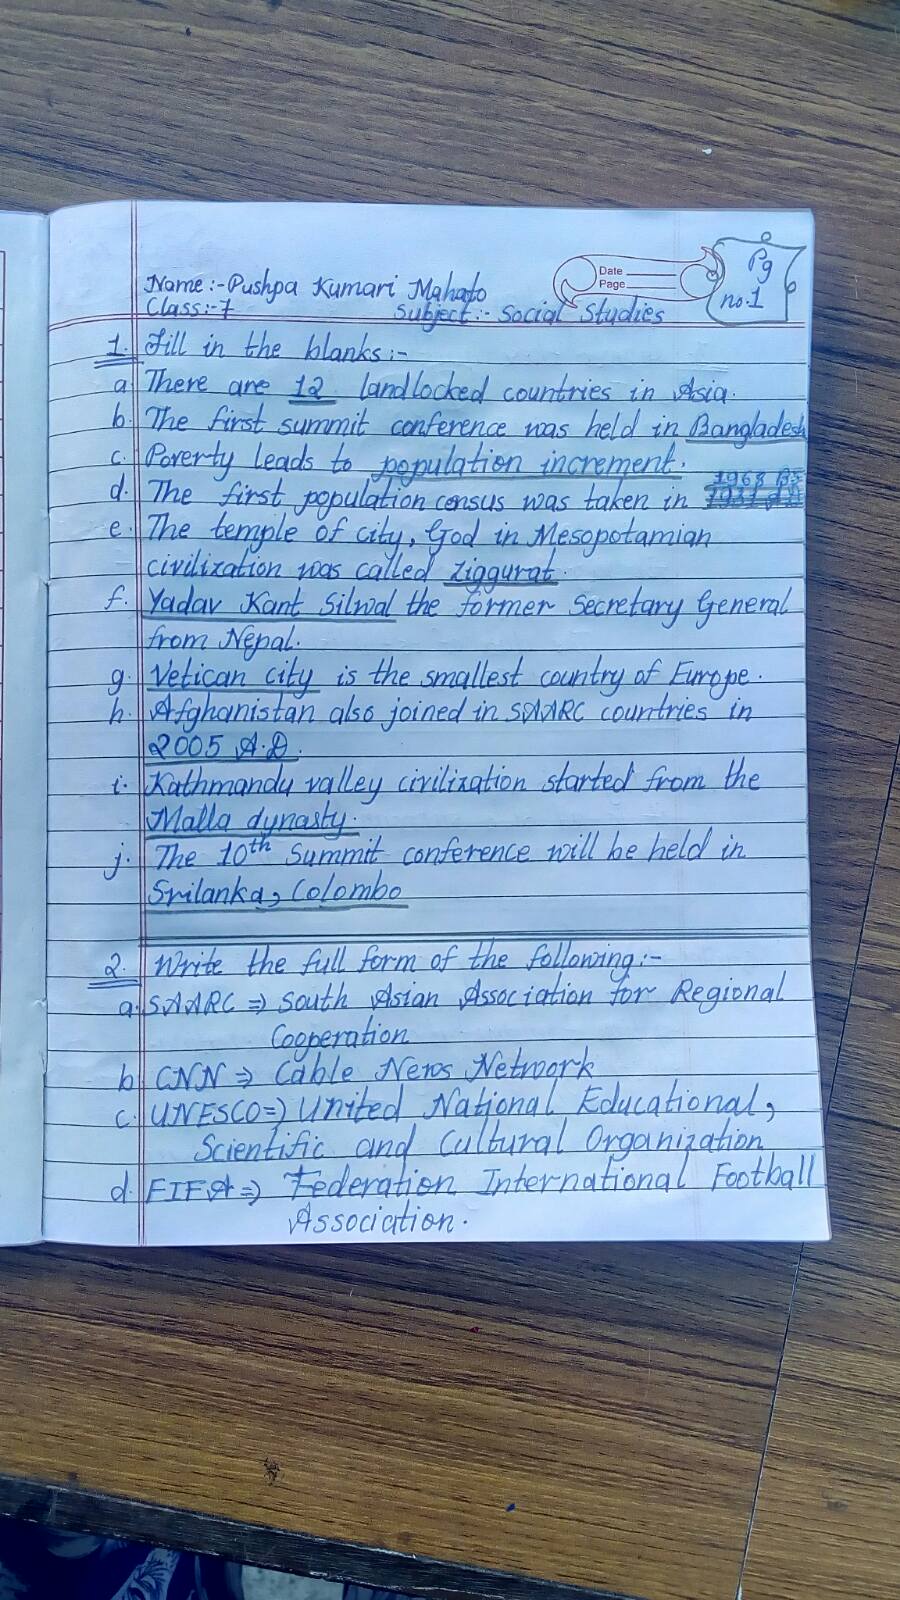 Date
Page
Pg
no.1
Name:-Pushpa Kumari Mahato
Class:-7 Subject:- Social Studies
1. Fill in the blanks:-
a. There are 12 landlocked countries in Asia.
b. The first summit conference was held in Bangladesh
c. Poverty leads to population increment.
1968 BS
d. The first population census was taken in
e. The temple of city, God in Mesopotamian
civilization was called Ziggurat.
f. Yadav Kant Silwal the former Secretary General
from Nepal.
g. Vetican city is the smallest country of Europe.
h. Afghanistan also joined in SAARC countries in
2005 A.D.
i. Kathmandu valley civilization started from the
Malla dynasty.
j. The 10th Summit conference will be held in
Srilanka, Colombo
2. Write the full form of the following:-
a. SAARC => South Asian Association for Regional
Cooperation
b. CNN => Cable News Network
c. UNESCO=) United National Educational,
Scientific and Cultural Organization
d. FIFA => Federation International Football
Association.